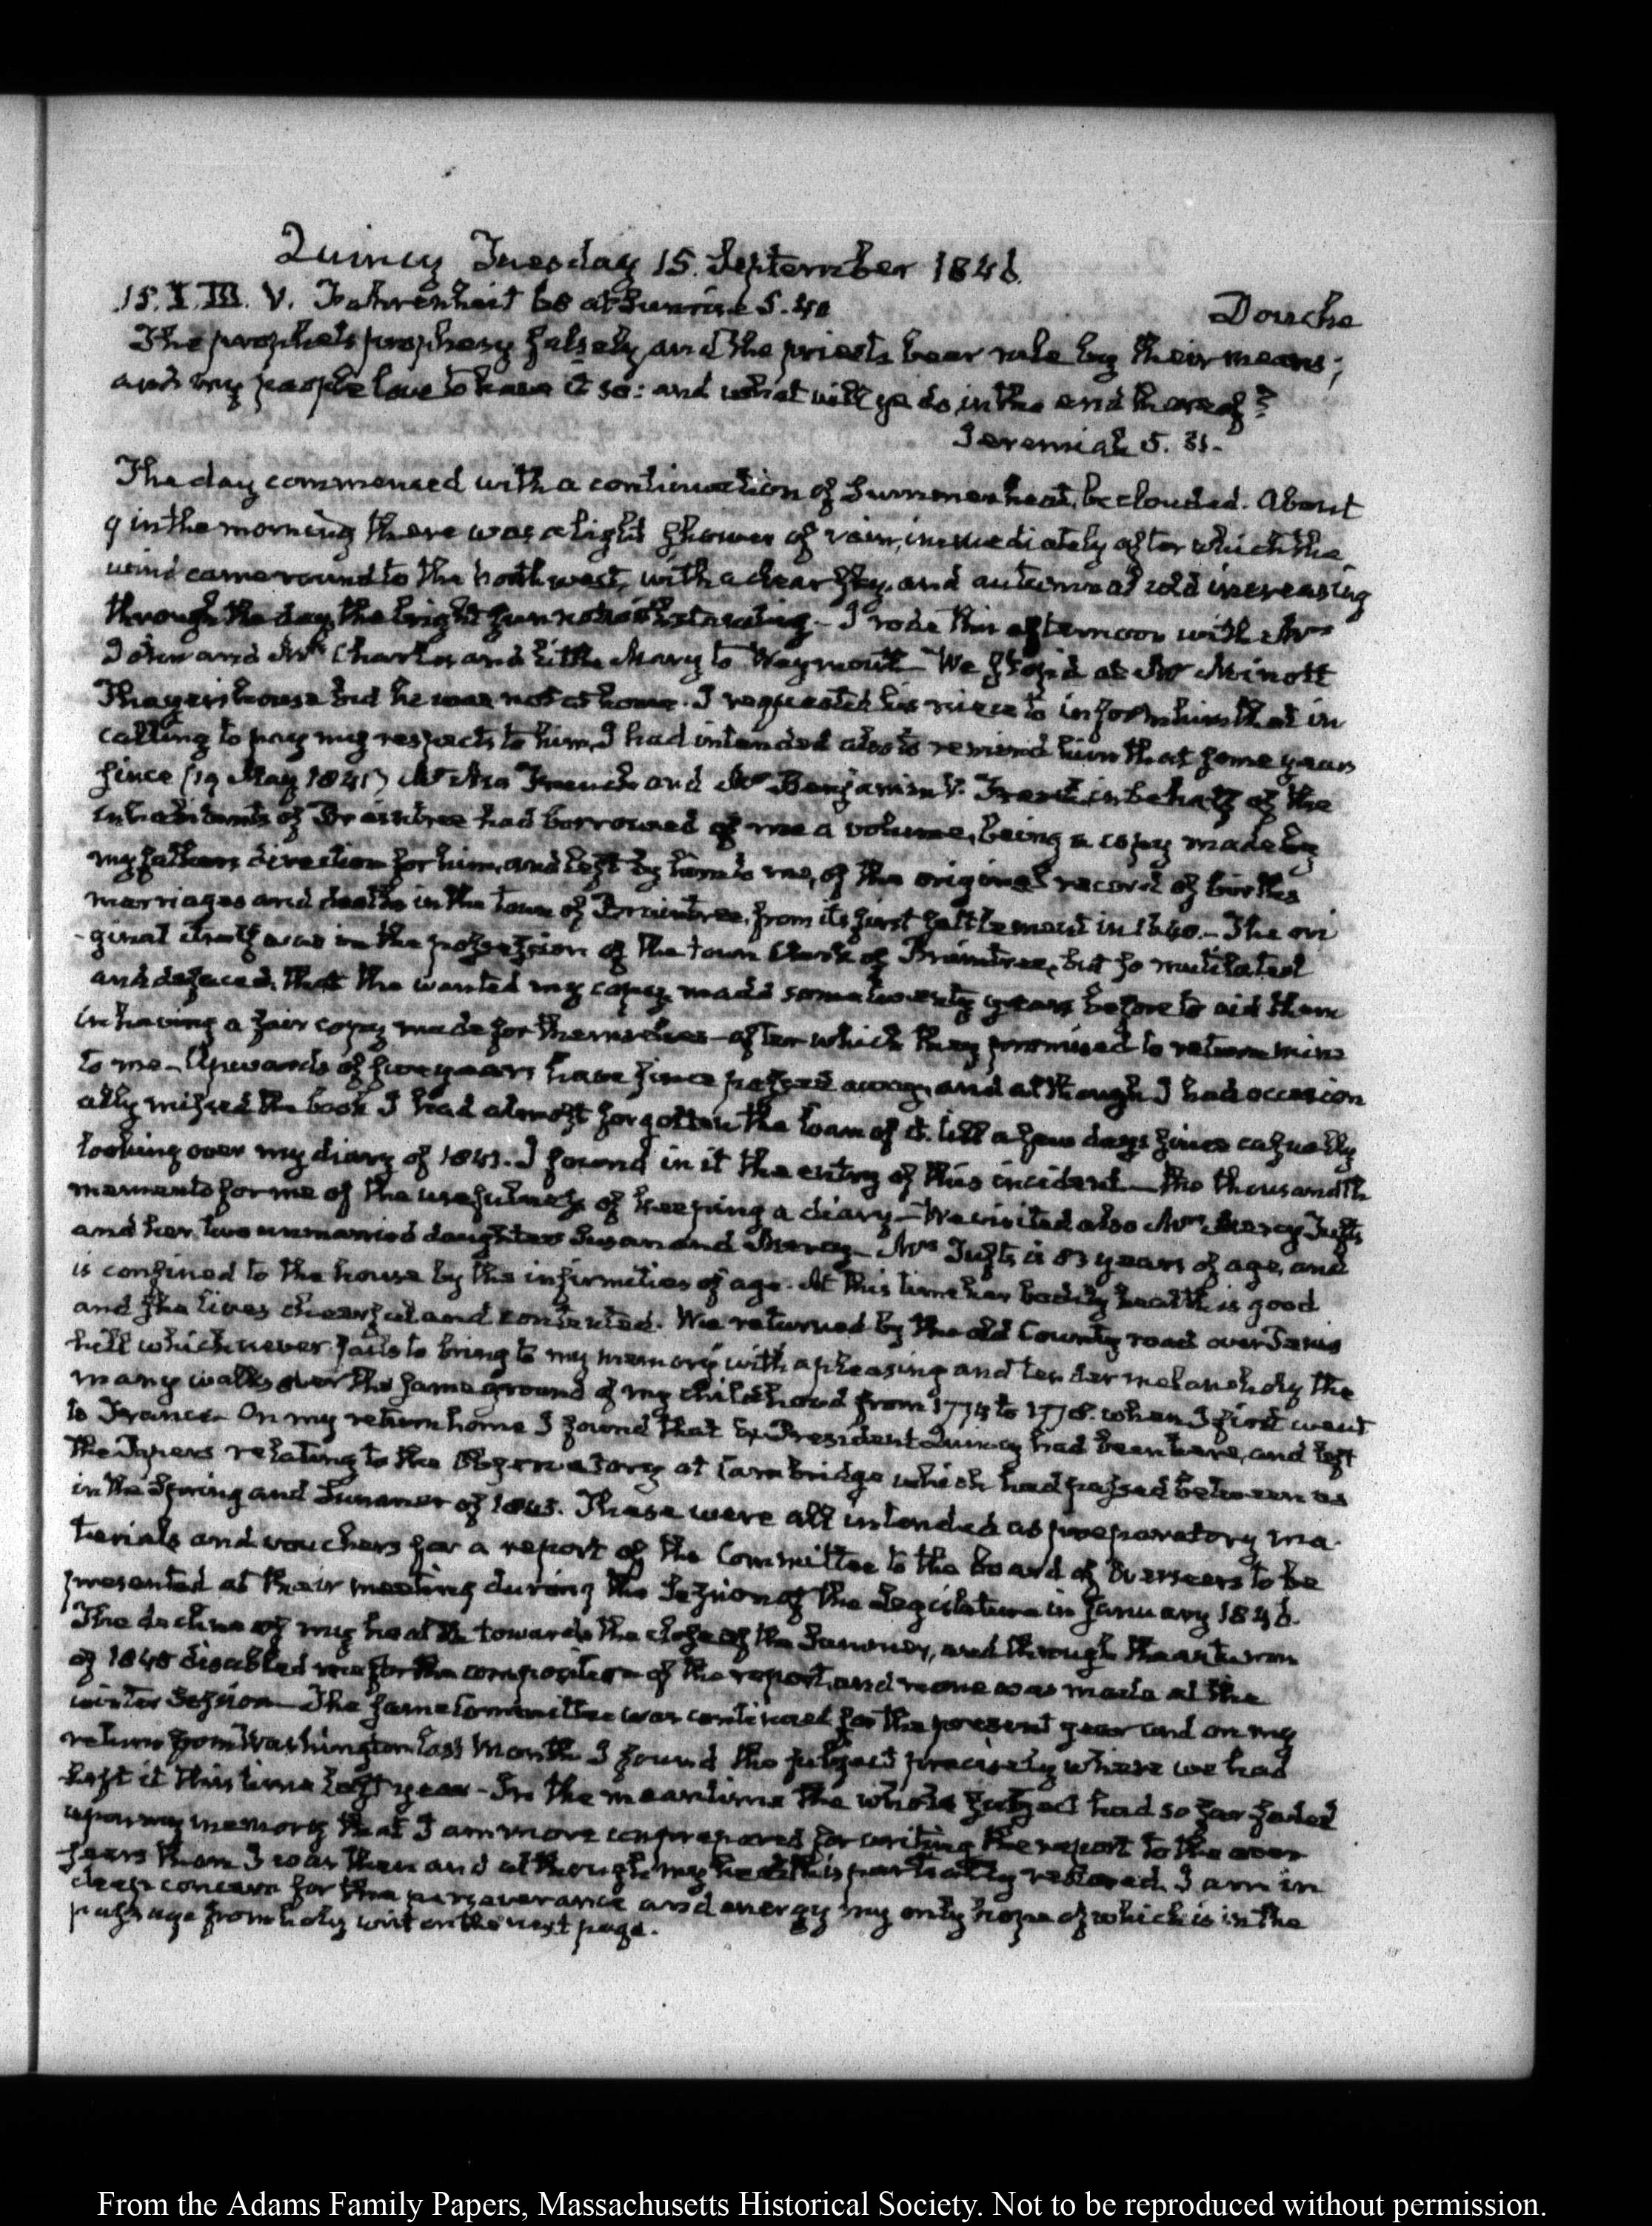 Quincy Tuesday 15. September 1846.
15. I. III. V. Fahrenheit 68 at Sunrise 5.40
Douche
The prophets prophesy falsely, and the priests bear rule by their means;
and my people love to have it so: and what will ye do in the end thereof?
Jeremiah 5. 31.
The day commenced with a continuation of Summer heat, beclouded. About
9 in the morning there was a light shower of rain, immediately after which the
wind came round to the north west, with a clear sky, and autumnal cold increasing
through the day, the bright sun notwithstanding — I rode this afternoon with Mrs
John and Mrs Charles and little Mary to Weymouth — We stop'd at Mr Minott
Thayer's house but he was not at home. I requested his niece to inform him that in
calling to pay my respects to him, I had intended also to remind him that some years
since (19 May 1841) Mr Asa French and Mr Benjamin V. French in behalf of the
inhabitants of Braintree had borrowed of me a volume, being a copy made by
my father's direction for him, and left by him to me, of the original record of births
marriages and deaths in the town of Braintree, from its first settlement in 1640. — The ori
-ginal itself was in the possession of the town Clerk of Braintree, but so mutilated
and defaced, that the wanted my copy, made some twenty years before to aid them
in having a fair copy made for themselves — after which they promised to return mine
to me — Upwards of five years have since passed away, and although I had occasion
ally missed the book I had almost forgotten the loan of it, till a few days since casually
looking over my diary of 1841. I found in it the entry of this incident — the thousandth
memento for me of the usefulness of keeping a diary — We visited also Mrs Mercy Tufts
and her two unmarried daughters Susan and Mercy — Mrs Tufts is 83 years of age, and
is confined to the house by the infirmities of age. At this time her bodily health is good
and she lives cheerful and contented. We returned by the old County road over Penns
hill which never fails to bring to my memory with a pleasing and tender melancholy the
many walks over the same ground of my childhood from 1774 to 1778. when I first went
to France — On my return home I found that Ex President Quincy had been here, and left
the Papers relating to the Observatory at Cambridge which had passed between us
in the Spring and Summer of 1845. These were all intended as preparatory ma-
terials and vouchers for a report of the Committee to the board of Overseers to be
presented at their meeting during the Session of the Legislature in January 1846.
The decline of my health towards the close of the Summer, and through the autumn
of 1845 disabled me for the composition of the report, and none was made at the
winter Session — The same Committee was continued for the present year and on my
return from Washington last Month I found the subject precisely where we had
left it this time last year — In the meantime the whole subject had so far faded
upon my memory that I am more unprepared for writing the report to the over
seers than I was then and although my health is partially restored, I am in
deep concern for the perseverance and energy my only hope of which is in the
passage from holy writ on the next page.
From the Adams Family Papers, Massachusetts Historical Society. Not to be reproduced without permission.